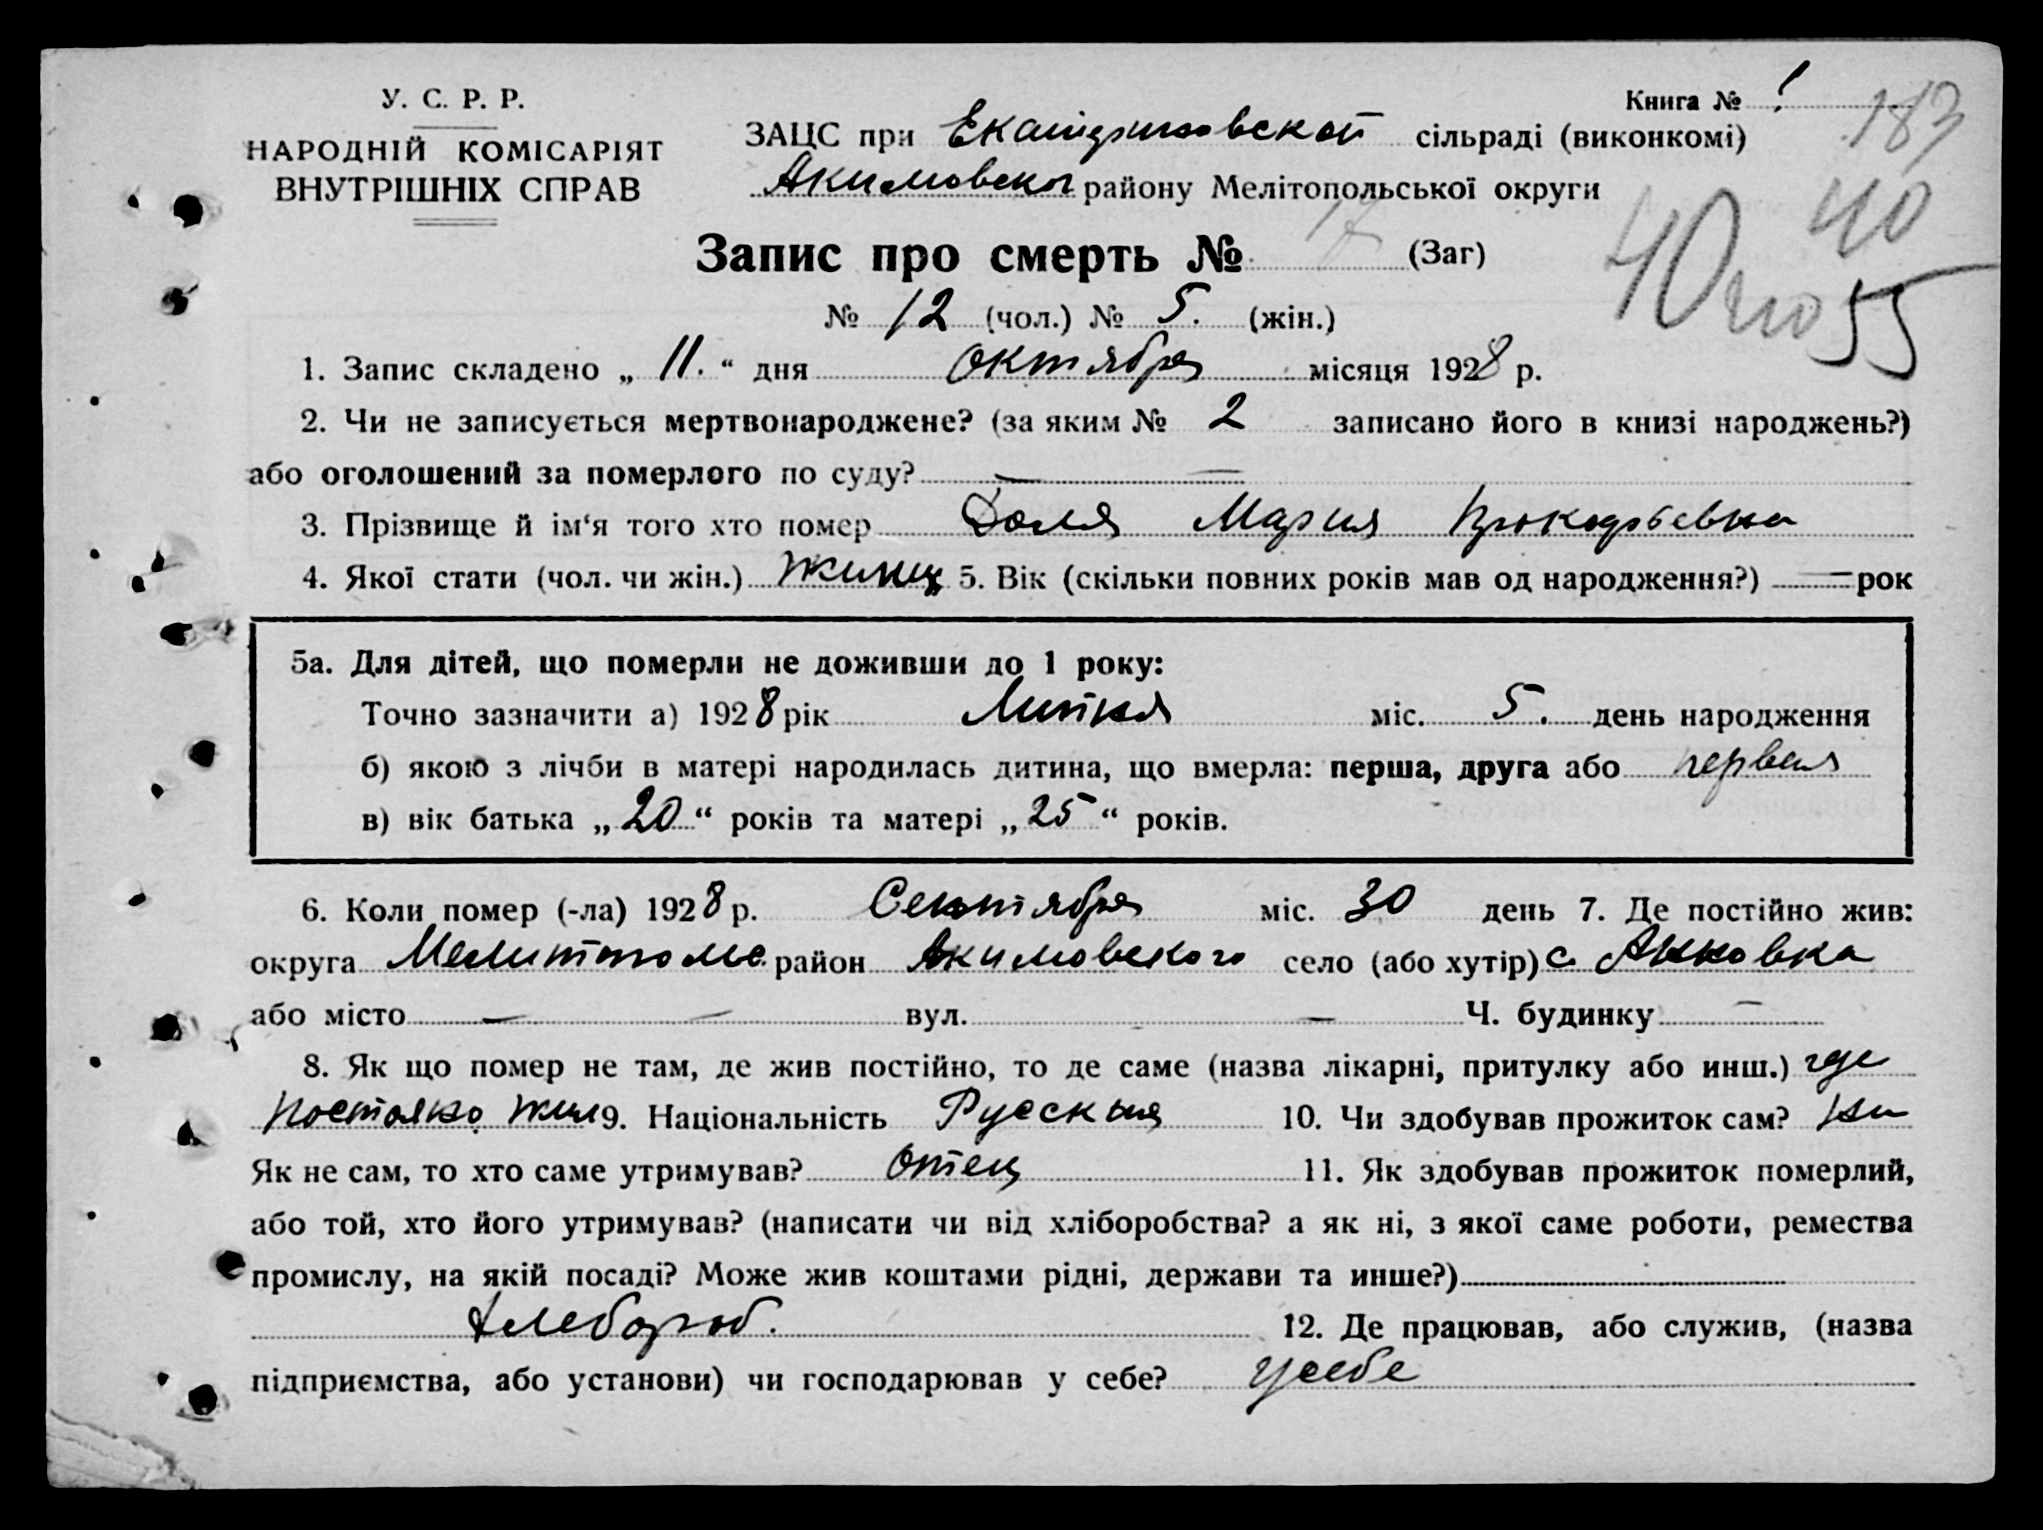 У. С. Р. Р.
НАРОДНІЙ КОМІСАРІЯТ
ВНУТРІШНІХ СПРАВ
Книга № 1
183
ЗАЦС при Екатириновской сільраді (виконкомі)
Акимовског району Мелітопольської округи
40
40
55
Запис про смерть № 17 (Заг)
№ 12 (чол.) № 5. (жін.)
1. Запис складено „ 11. “ дня октября місяця 1928 р.
2. Чи не записується мертвонароджене? (за яким № 2 записано його в книзі народжень?)
або оголошений за померлого по суду? —
3. Прізвище й ім‘я того хто помер Доля Мария
4. Якої стати (чол. чи жін.) Жинщ 5. Вік (скільки повних років мав од народження?) — рок
5а. Для дітей, що померли не доживши до 1 року:
Точно зазначити а) 1928 рік міс. 5. день народження
б) якою з лічби в матері народилась дитина, що вмерла: перша, друга або первая
в) вік батька „ 20 “ років та матері „ 25 “ років.
6. Коли помер (-ла) 1928 р. Сентября міс. 30 день 7. Де постійно жив:
округа Мелитополь. район Акимовского село (або хутір) с. Анновка
або місто — — вул. — Ч. будинку —
8. Як що помер не там, де жив постійно, то де саме (назва лікарні, притулку або инш.) где
постояно жил 9. Національність Русскыя 10. Чи здобував прожиток сам? ни
Як не сам, то хто саме утримував? отец 11. Як здобував прожиток померлий,
або той, хто його утримував? (написати чи від хліборобства? а як ні, з якої саме роботи, ремества
промислу, на якій посаді? Може жив коштами рідні, держави та инше?)
хлебороб. 12. Де працював, або служив, (назва
підприємства, або установи) чи господарював у себе? усебе